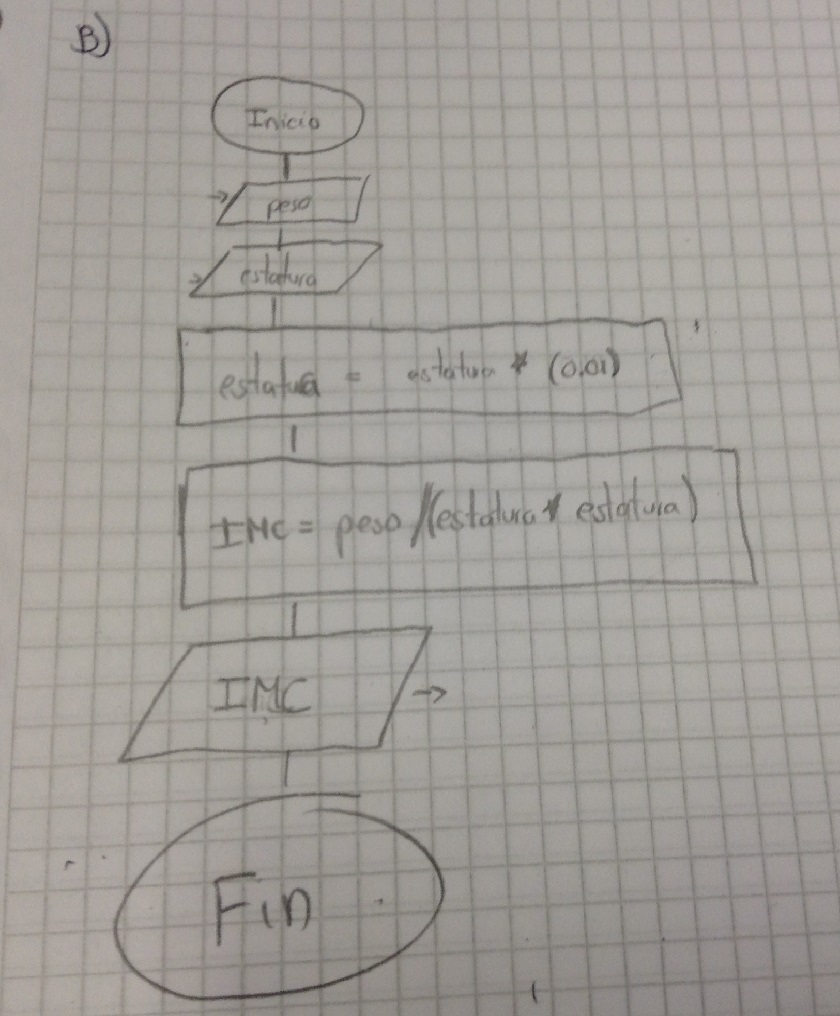 B)
Inicio
peso
estatura
estatua = estatura * (0.01)
IMC = peso /(estatura * estatura)
IMC
Fin